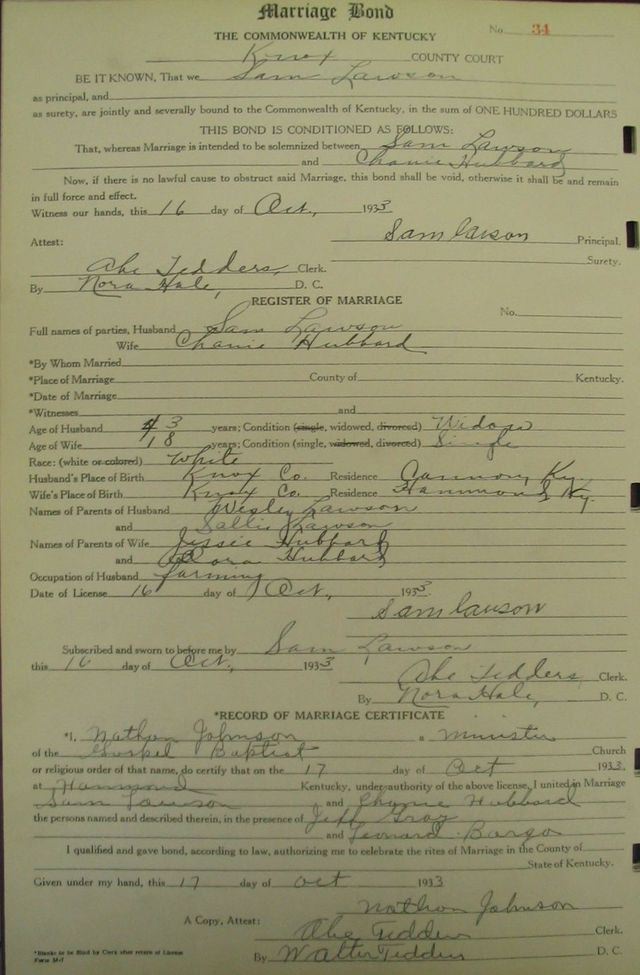 Marriage Bond
No. 34
THE COMMONWEALTH OF KENTUCKY
Knox COUNTY COURT
BE IT KNOWN, That we Sam Lawson
as principal, and
as surety, are jointly and severally bound to the Commonwealth of Kentucky, in the sum of ONE HUNDRED DOLLARS
THIS BOND IS CONDITIONED AS FOLLOWS:
That, whereas Marriage is intended to be solemnized between Sam Lawson
and Chanie Hubbard
Now, if there is no lawful cause to obstruct said Marriage, this bond shall be void, otherwise it shall be and remain
in full force and effect.
Witness our hands, this 16 day of Oct, 1933
Sam Lawson Principal.
Attest: Surety.
Abe Tedders, Clerk.
By Nora Hale, D. C.
REGISTER OF MARRIAGE
No.
Full names of parties, Husband Sam Lawson
Wife Chanie Hubbard
*By Whom Married
*Place of Marriage County of Kentucky.
*Date of Marriage
*Witnesses and
Age of Husband 43 years; Condition (single, widowed, divorced)
Age of Wife 18 years; Condition (single, widowed, divorced) Single
Race: (white or colored) White
Husband's Place of Birth Knox Co. Residence Cannon, Ky.
Wife's Place of Birth Knox Co. Residence Hammond, Ky.
Names of Parents of Husband Wesley Lawson
and Sallie Lawson
Names of Parents of Wife Jessie Hubbard
and Hubbard
Occupation of Husband farming
Date of License 16 day of Oct, 1933.
Sam Lawson
Subscribed and sworn to before me by Sam Lawson
this 16 day of Oct, 1933
Abe Tedders, Clerk.
By Nora Hale, D. C.
*RECORD OF MARRIAGE CERTIFICATE
*I, Nathan Johnson a minister
of the Gospel Baptist Church
or religious order of that name, do certify that on the 17 day of Oct 1933
at Hammond Kentucky, under authority of the above license, I united in Marriage
Sam Lawson and Hubbard
the persons named and described therein, in the presence of Jeff Gray
and Leonard Bargo
I qualified and gave bond, according to law, authorizing me to celebrate the rites of Marriage in the County of
State of Kentucky.
Given under my hand, this 17 day of oct 1933
Nathan Johnson
A Copy, Attest: Abe Tedders Clerk.
By Walter Tedders D. C.
*Blanks to be filled by Clerk after return of License